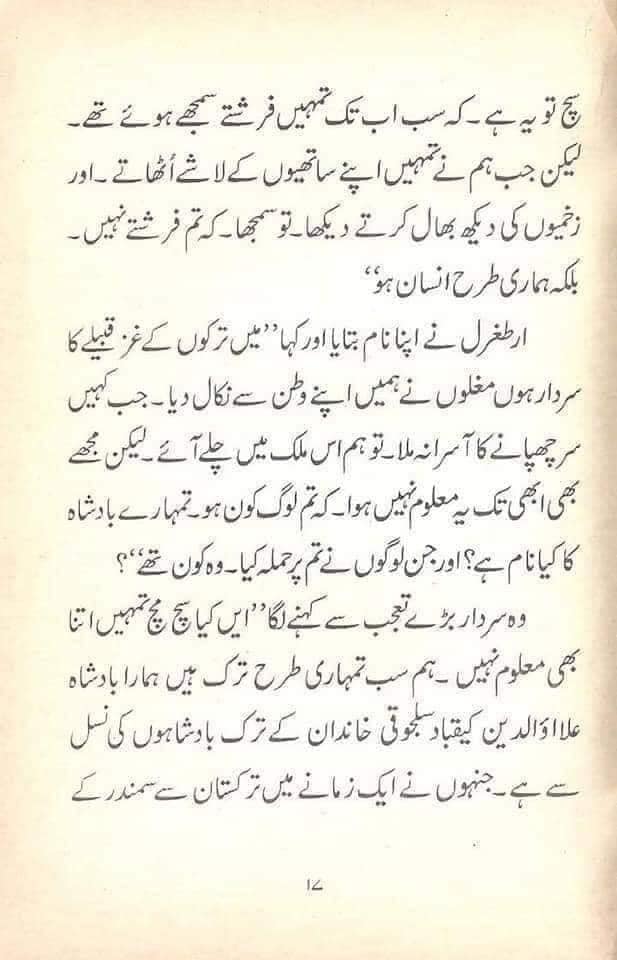 سچ تو یہ ہے۔ کہ سب اب تک تمہیں فرشتے سمجھے ہوئے تھے۔
لیکن جب ہم نے تمہیں اپنے ساتھیوں کے لاشے اُٹھاتے۔ اور
زخمیوں کی دیکھ بھال کرتے دیکھا۔ تو سمجھا۔ کہ تم فرشتے نہیں۔
بلکہ ہماری طرح انسان ہو‘‘
ارطغرل نے اپنا نام بتایا اور کہا ’’میں ترکوں کے غز قبیلے کا
سردار ہوں مغلوں نے ہمیں اپنے وطن سے نکال دیا۔ جب کہیں
سر چھپانے کا آسرا نہ ملا۔ تو ہم اس ملک میں چلے آئے۔ لیکن مجھے
بھی ابھی تک یہ معلوم نہیں ہوا۔ کہ تم لوگ کون ہو۔ تمہارے بادشاہ
کا کیا نام ہے؟ اور جن لوگوں نے تم پر حملہ کیا۔ وہ کون تھے‘‘؟
وہ سردار بڑے تعجب سے کہنے لگا ’’ایں کیا سچ مچ تمہیں اتنا
بھی معلوم نہیں۔ ہم سب تمہاری طرح ترک ہیں ہمارا بادشاہ
علاؤالدین کیقباد سلجوقی خاندان کے ترک بادشاہوں کی نسل
سے ہے۔ جنہوں نے ایک زمانے میں ترکستان سے سمندر کے
۱۷